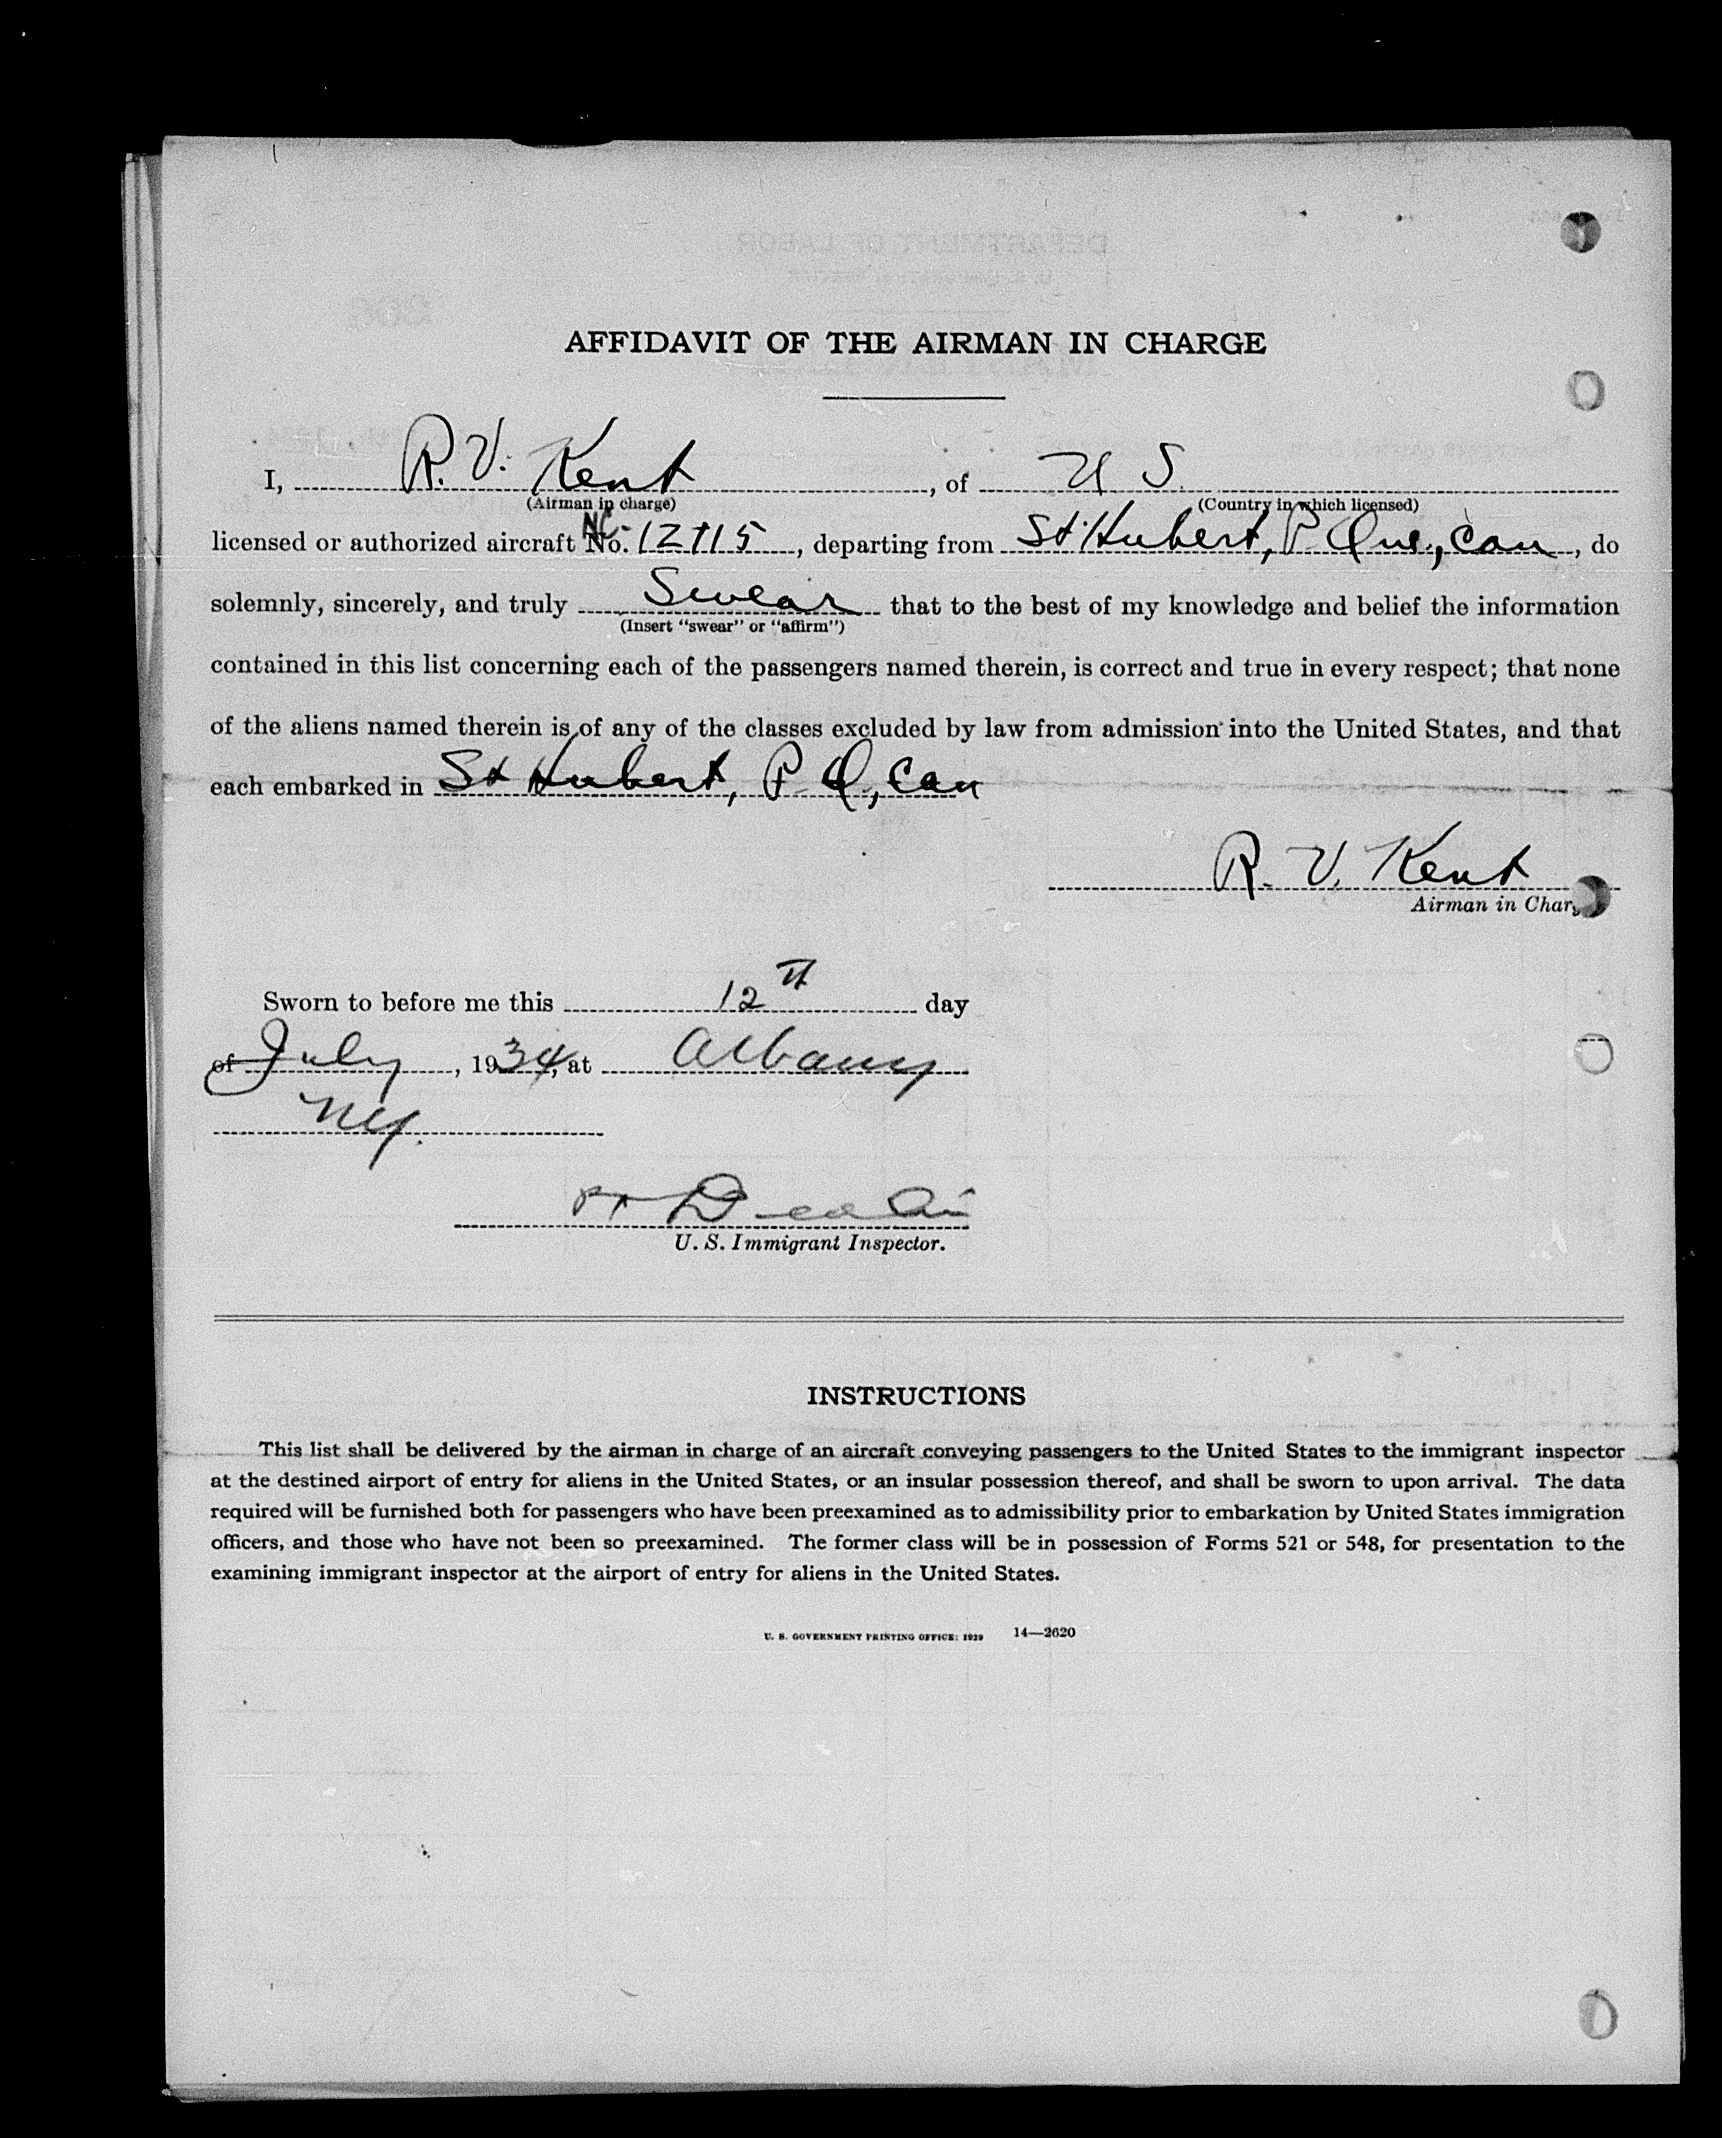 AFFIDAVIT OF THE AIRMAN IN CHARGE
I, R. V. Kent, of U S.
(Airman in charge) (Country in which licensed)
licensed or authorized aircraft No. NC-12115, departing from St. Hubert, P. Que., Can, do
solemnly, sincerely, and truly Swear that to the best of my knowledge and belief the information
(Insert "swear" or "affirm")
contained in this list concerning each of the passengers named therein, is correct and true in every respect; that none
of the aliens named therein is of any of the classes excluded by law from admission into the United States, and that
each embarked in St Hubert, P Q, Can
R. V. Kent
Airman in Charg
Sworn to before me this 12th day
of July, 1934, at Albany
NY.
U. S. Immigrant Inspector.
INSTRUCTIONS
This list shall be delivered by the airman in charge of an aircraft conveying passengers to the United States to the immigrant inspector
at the destined airport of entry for aliens in the United States, or an insular possession thereof, and shall be sworn to upon arrival. The data
required will be furnished both for passengers who have been preexamined as to admissibility prior to embarkation by United States immigration
officers, and those who have not been so preexamined. The former class will be in possession of Forms 521 or 548, for presentation to the
examining immigrant inspector at the airport of entry for aliens in the United States.
U. S. GOVERNMENT PRINTING OFFICE: 1929 14—2620